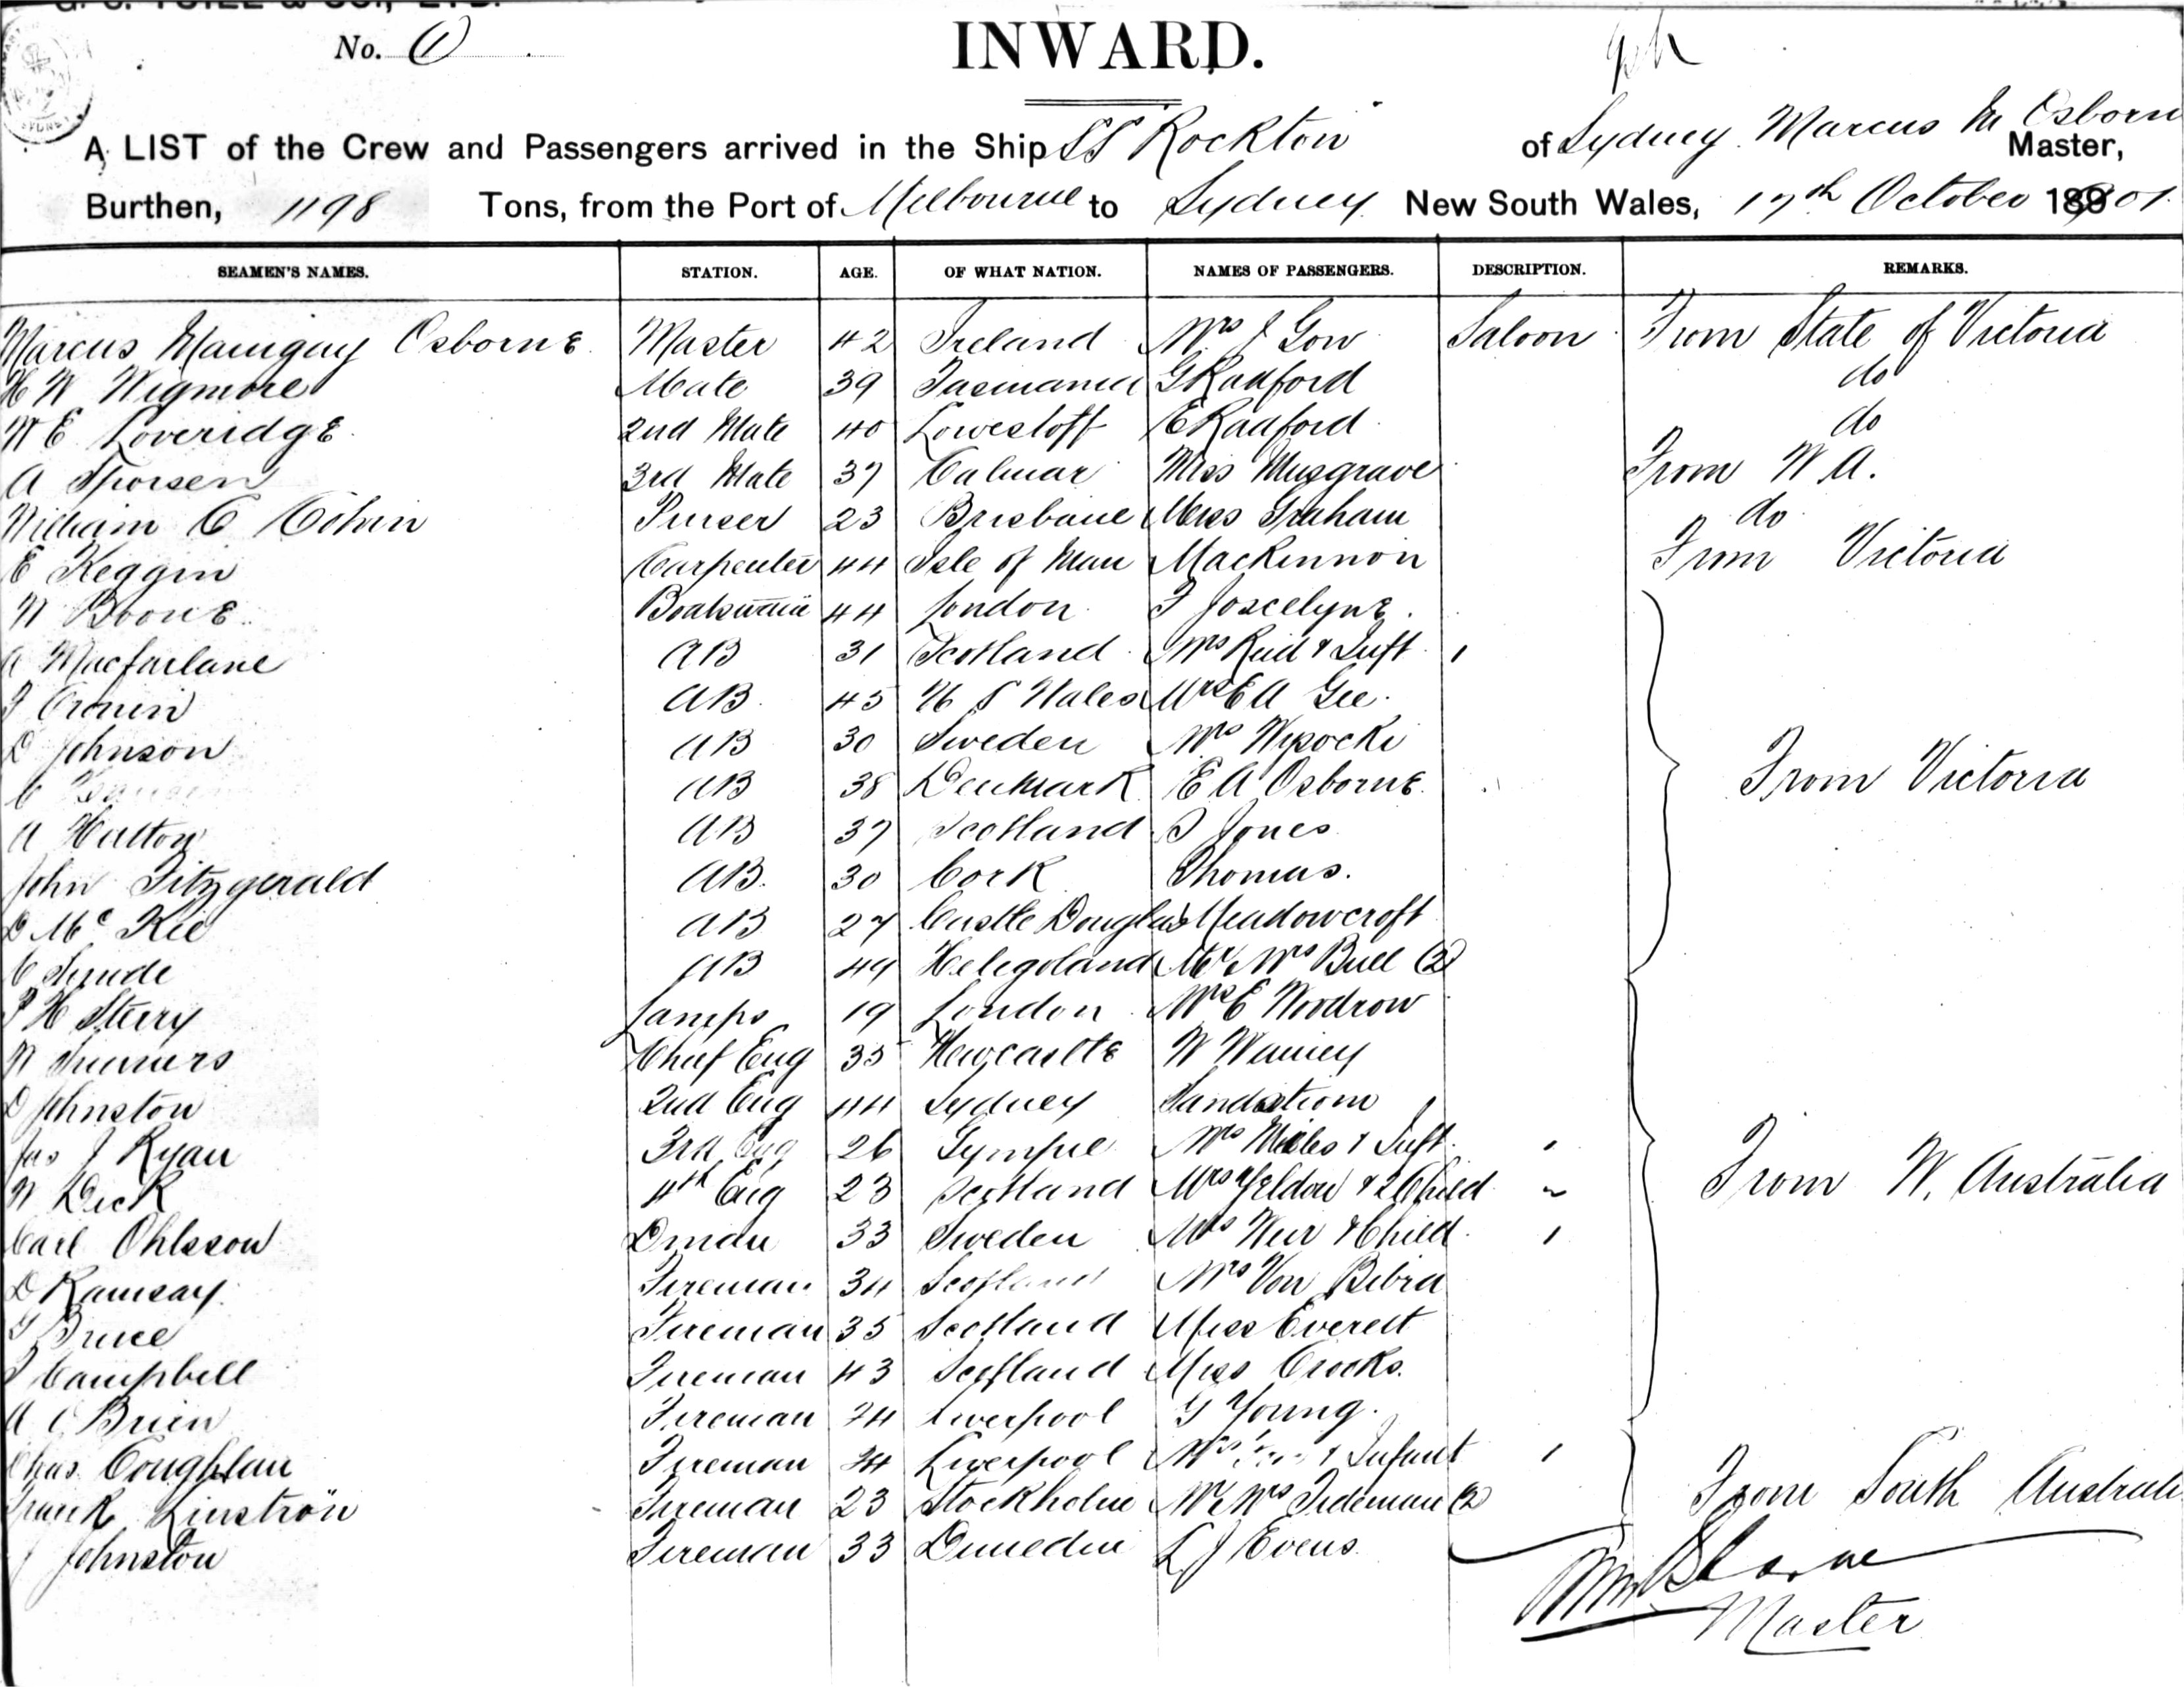 No. 1
INWARD.
A LIST of the Crew and Passengers arrived in the Ship SS Rockton of Sydney Marcus M Osborn Master,
Burthen, 1198 Tons, from the Port of Melbourne to Sydney New South Wales, 17th October 1901.
SEAMEN'S NAMES. STATION. AGE. OF WHAT NATION. NAMES OF PASSENGERS. DESCRIPTION. REMARKS.
Marcus Osborne Master 42 Ireland Mrs J Gow Saloon From State of Victoria
H W Wigmore Mate 39 Tasmania G Radford do
W E Loveridge 2nd Mate 40 Lowestoff E Radford do
A 3rd Mate 37 Calmar Miss Musgrave From W A.
William C Purser 23 Brisbane Miss Graham do
E Keggin Carpenter 44 Isle of Man Mackinnon From Victoria
W Boone Boatswain 44 London F Joscelyne
A Macfarlane AB 31 Scotland Mrs Reid & Inft 1
J Cronin AB 45 N S Wales Mrs E A Gee
D Johnson AB 30 Sweden Mrs Wysocki
C AB 38 Denmark E A Osborne From Victoria
A Hutton AB 37 Scotland Jones
John Fitzgerald AB 30 Cork Thomas.
D McKie AB 27 Castle Douglas Meadowcroft
C AB 49 Helegoland Mr Mrs Bull (2)
H Steery Lamps 19 London Mrs E Woodrow
W Chief Eng 35 Newcastle W
D Johnston 2nd Eng 44 Sydney Sandstrom
Jas J Ryan 3rd Eng 26 Gympie Mrs Miles & Inft 1
W Dick 4th Eng 23 Scotland Mrs Yeldon & 2 Child 2 From W. Australia
Carl Ohlsson Dmdn 33 Sweden Mrs Weir & Child 1
D Ramsay Fireman 34 Scotland Mrs Von Bibra
G Bruce Fireman 35 Scotland Miss Everett
Campbell Fireman 43 Scotland Miss Crooks.
A O Brien Fireman 24 Liverpool G Young.
Chas Coughlan Fireman 34 Liverpool Mrs & Infant 1
Frank Linström Fireman 23 Stockholm Mr Mrs Tideman (2) From South Australi
J Johnston Fireman 33 Dunedin L J Evens
Master